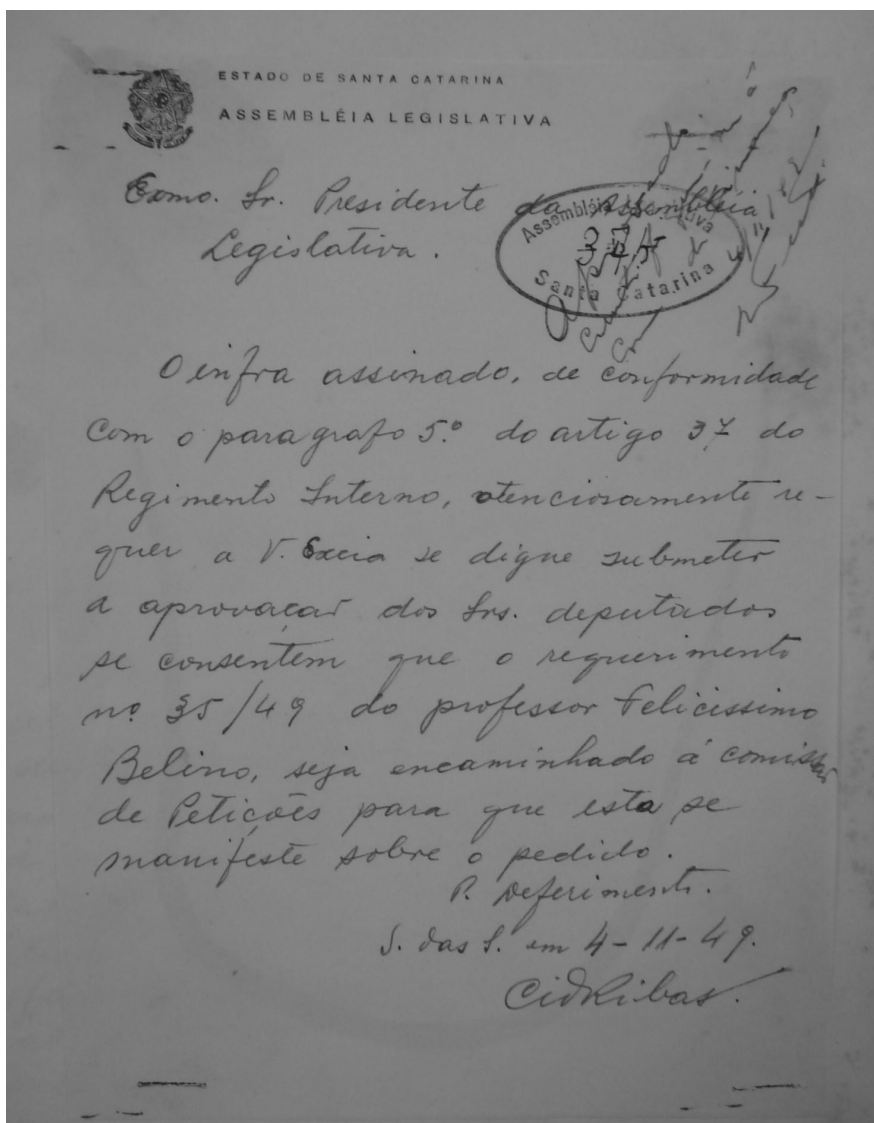 ESTADO DE SANTA CATARINA
ASSEMBLÉIA LEGISLATIVA
Exmo. Sr. Presidente da Assembléia
Legislativa.
Assembléia Legislativa
Santa Catarina
O infra assinado, de conformidade
com o paragrafo 5.º do artigo 37 do
Regimento Interno, atenciosamente re-
quer a V. Excia se digne submeter
a aprovação dos Srs. deputados
se consentem que o requerimento
nº 35/49 do professor Felicissimo
Belino, seja encaminhado á comissão
de Petições para que esta se
manifeste sobre o pedido.
P. Deferimento.
S. das S. em 4-11-49.
Cid Ribas.